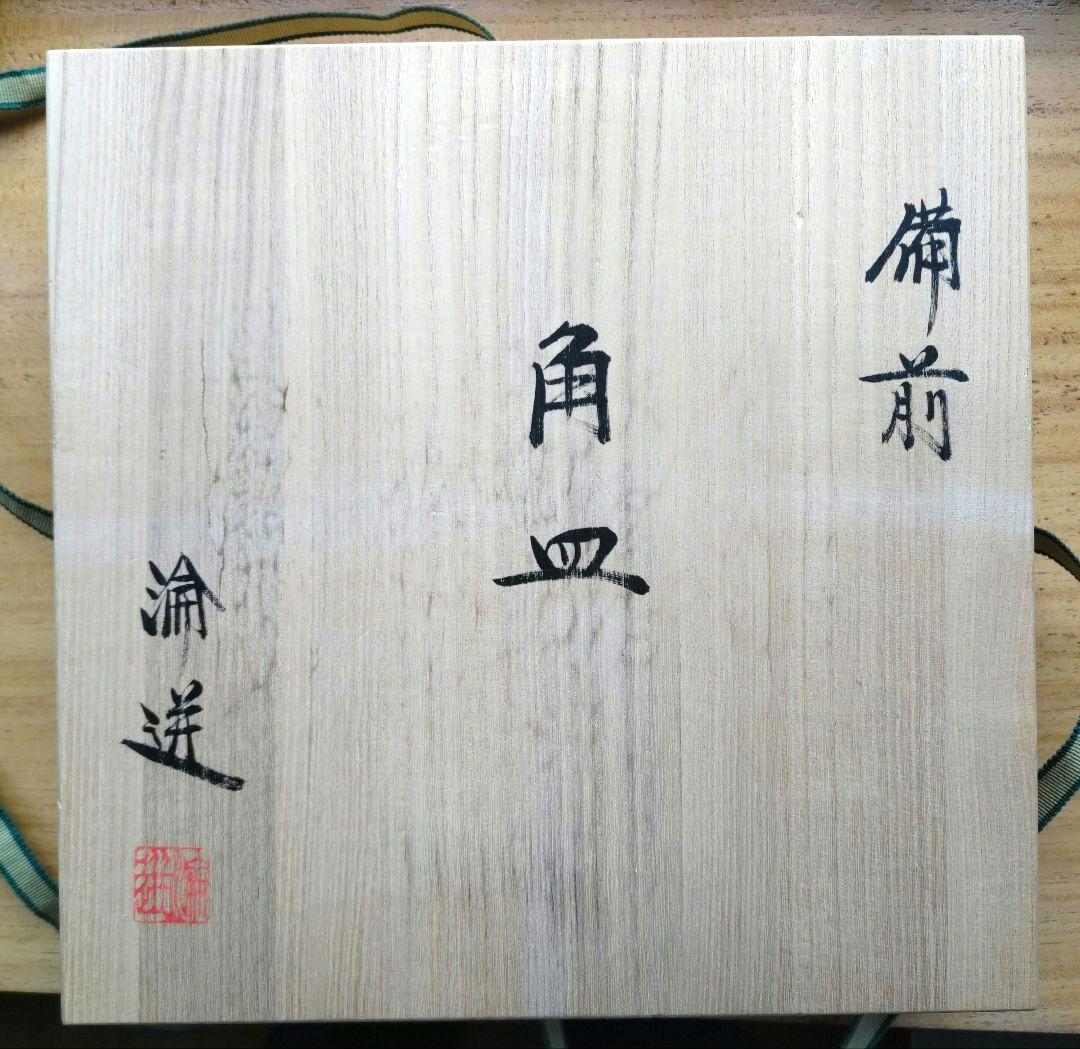 備前
角皿
淪迸